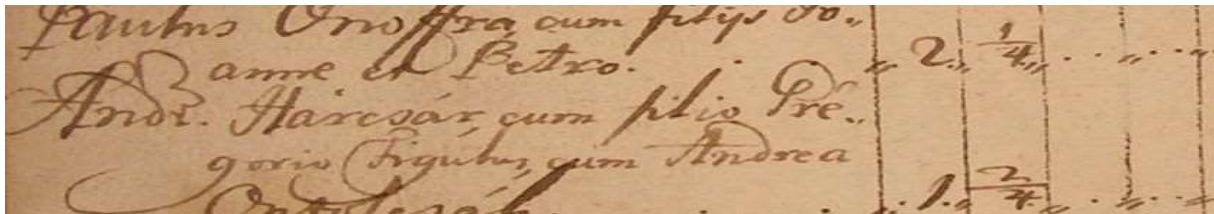 Paulus Onoffra, cum filijs Jo„
anne et Petro. „ 2„ 1/4„ . „ . „
Andr. Harcsár, cum filio Gre„
gorio Figulus, cum Andrea
. 1„ 2/4„ . „ . „